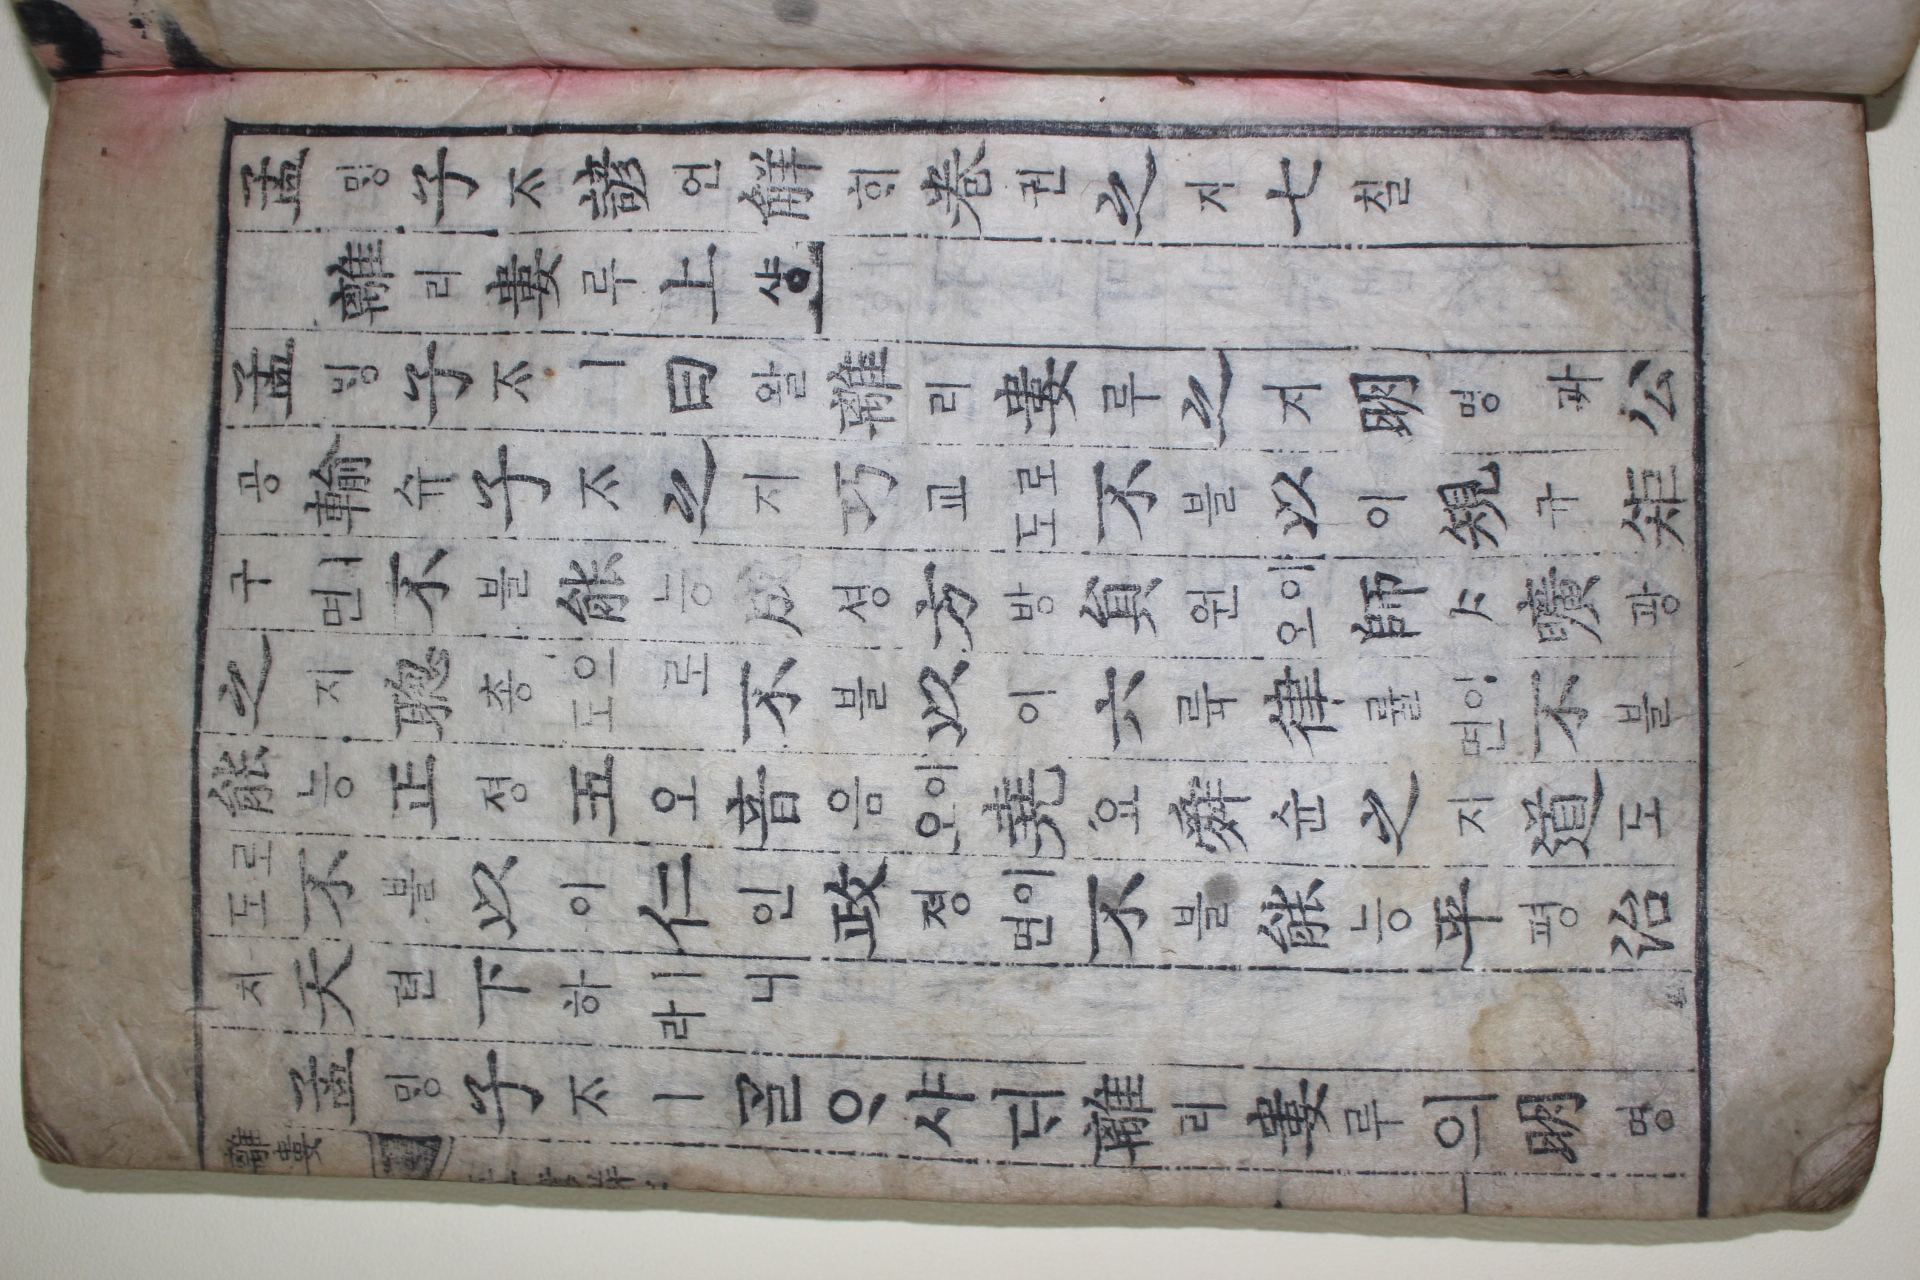 孟ᄆᆡᆼ子ᄌᆞ諺언解ᄒᆡ卷권之지七칠
離리婁루上샹
孟ᄆᆡᆼ子ᄌᆞㅣ曰왈離리婁루之지明명과公
공輸슈子ᄌᆞ之지巧교도로不블以이規규矩
구면ㅣ不블能능成셩方방員원오이師ᄉᆞ曠광
之지聰총도으로不블以이六륙律률면이不블
能능正졍五오音음오이堯요舜슌之지道도
도로不블以이仁인政졍면이不블能능平평治
치天텬下하라ㅣ니
孟ᄆᆡᆼ子ᄌᆞㅣᄀᆞᆯᄋᆞ샤ᄃᆡ離리婁루의明명
離婁